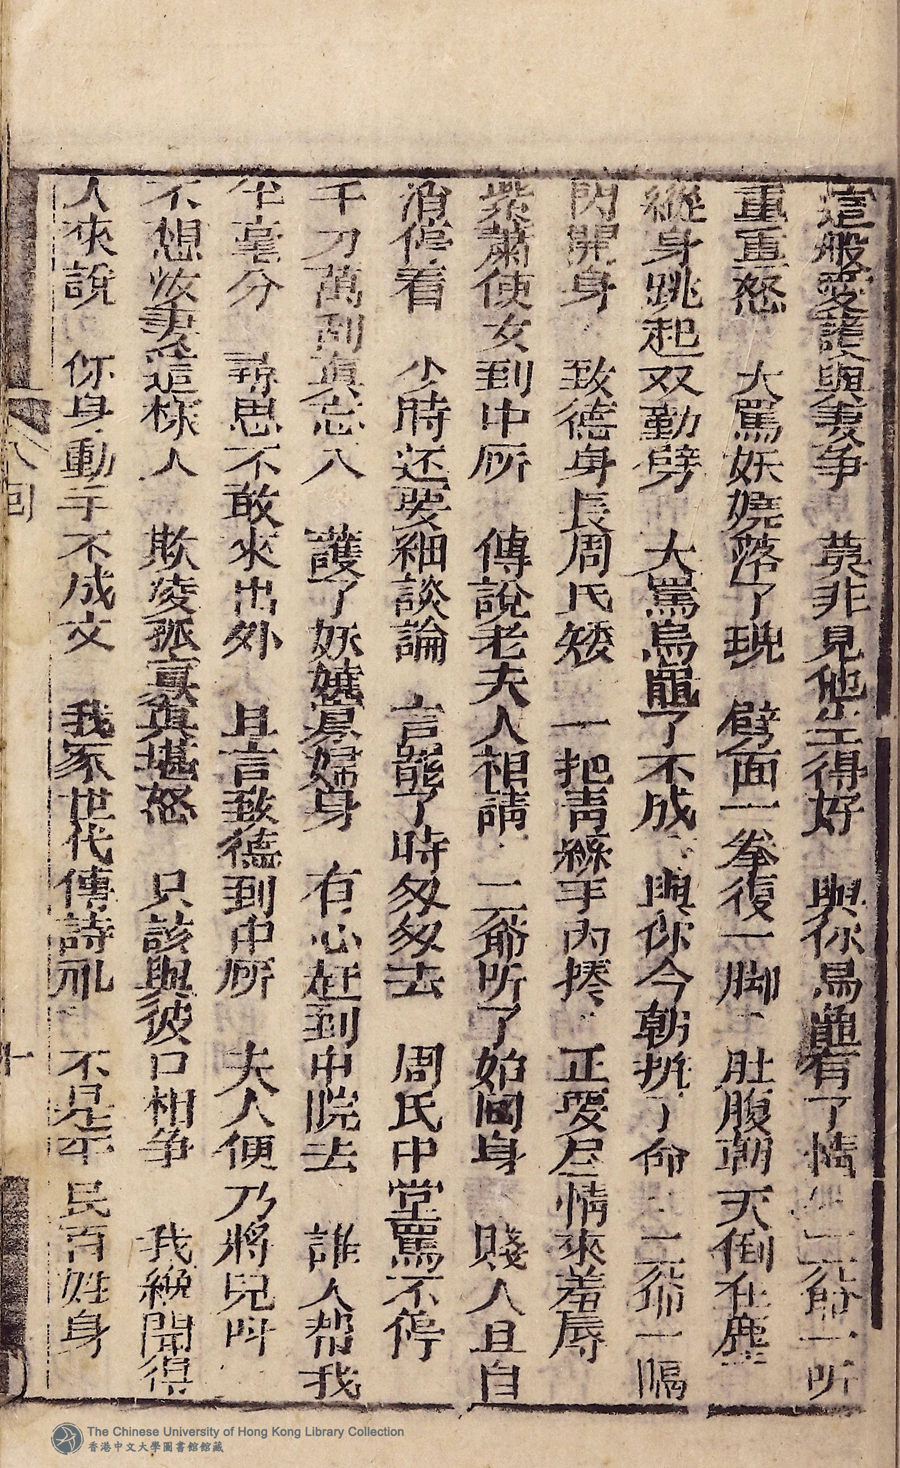 這般愛護與妻爭　莫非見他生得好　與你烏龜有了情　二爺一听
重重怒　大罵妖嬈落了現　劈面一拳復一脚　肚腹朝天倒在塵
縱身跳起双勤劈　大罵烏龜了不成　與你今朝拚了命　二爺一隔
閃開身　致德身長周氏矮　一把青絲手内揍　正要尽情來羞辱
紫蕭使女到中所　傳說老夫人相請　二爺听了始囬身　賤人且自
消停看　少時还要細談論　言罷了時匆匆去　周氏中堂罵不停
千刀萬剐真忘八　護了妖嬈寡婦身　有心赶到中院去　誰人帮我
半毫分　尋思不敢來出外　且言致德到中所　夫人便乃將兒叫
不想你妻這樣人　欺凌孤寡真堪怒　只該與彼口相争　我纔聞得
人來說　你身動手不成文　我家世代傳詩礼　不是平民百姓身
八回
十
The Chinese University of Hong Kong Library Collection
香港中文大學圖書館館藏